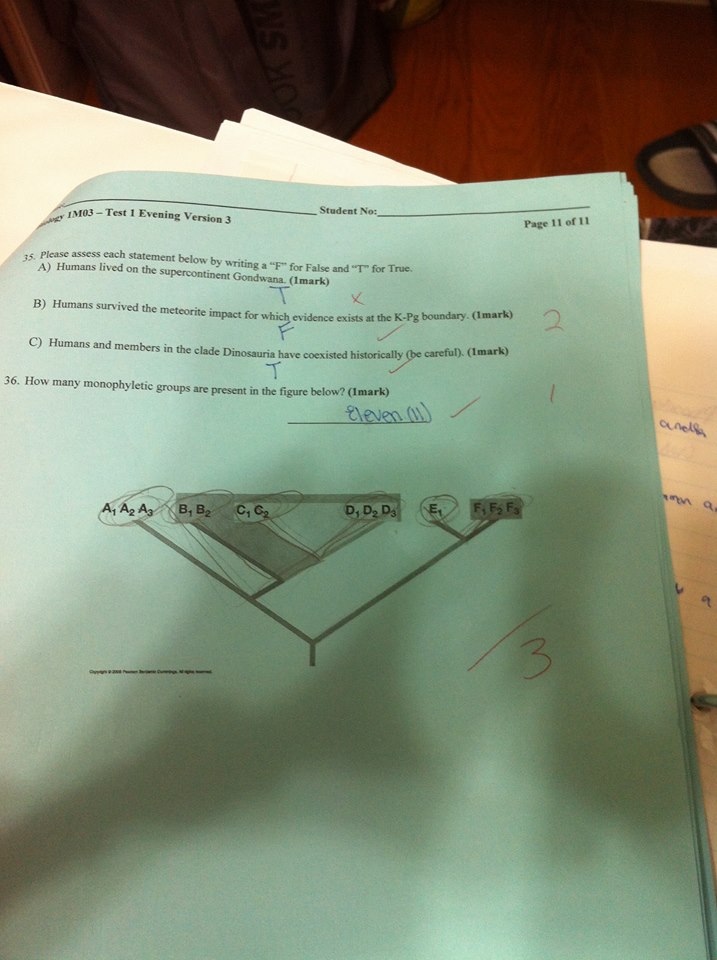 1M03 – Test 1 Evening Version 3
Student No:
Page 11 of 11
35. Please assess each statement below by writing a "F" for False and "T" for True.
A) Humans lived on the supercontinent Gondwana. (1mark)
T
B) Humans survived the meteorite impact for which evidence exists at the K-Pg boundary. (1mark)
F
2
C) Humans and members in the clade Dinosauria have coexisted historically (be careful). (1mark)
T
36. How many monophyletic groups are present in the figure below? (1mark)
1
Eleven (11)
A1 A2 A3 B1 B2 C1 C2 D1 D2 D3 E1 F1 F2 F3
/3
Copyright © 2008 Pearson Benjamin Cummings. All rights reserved.